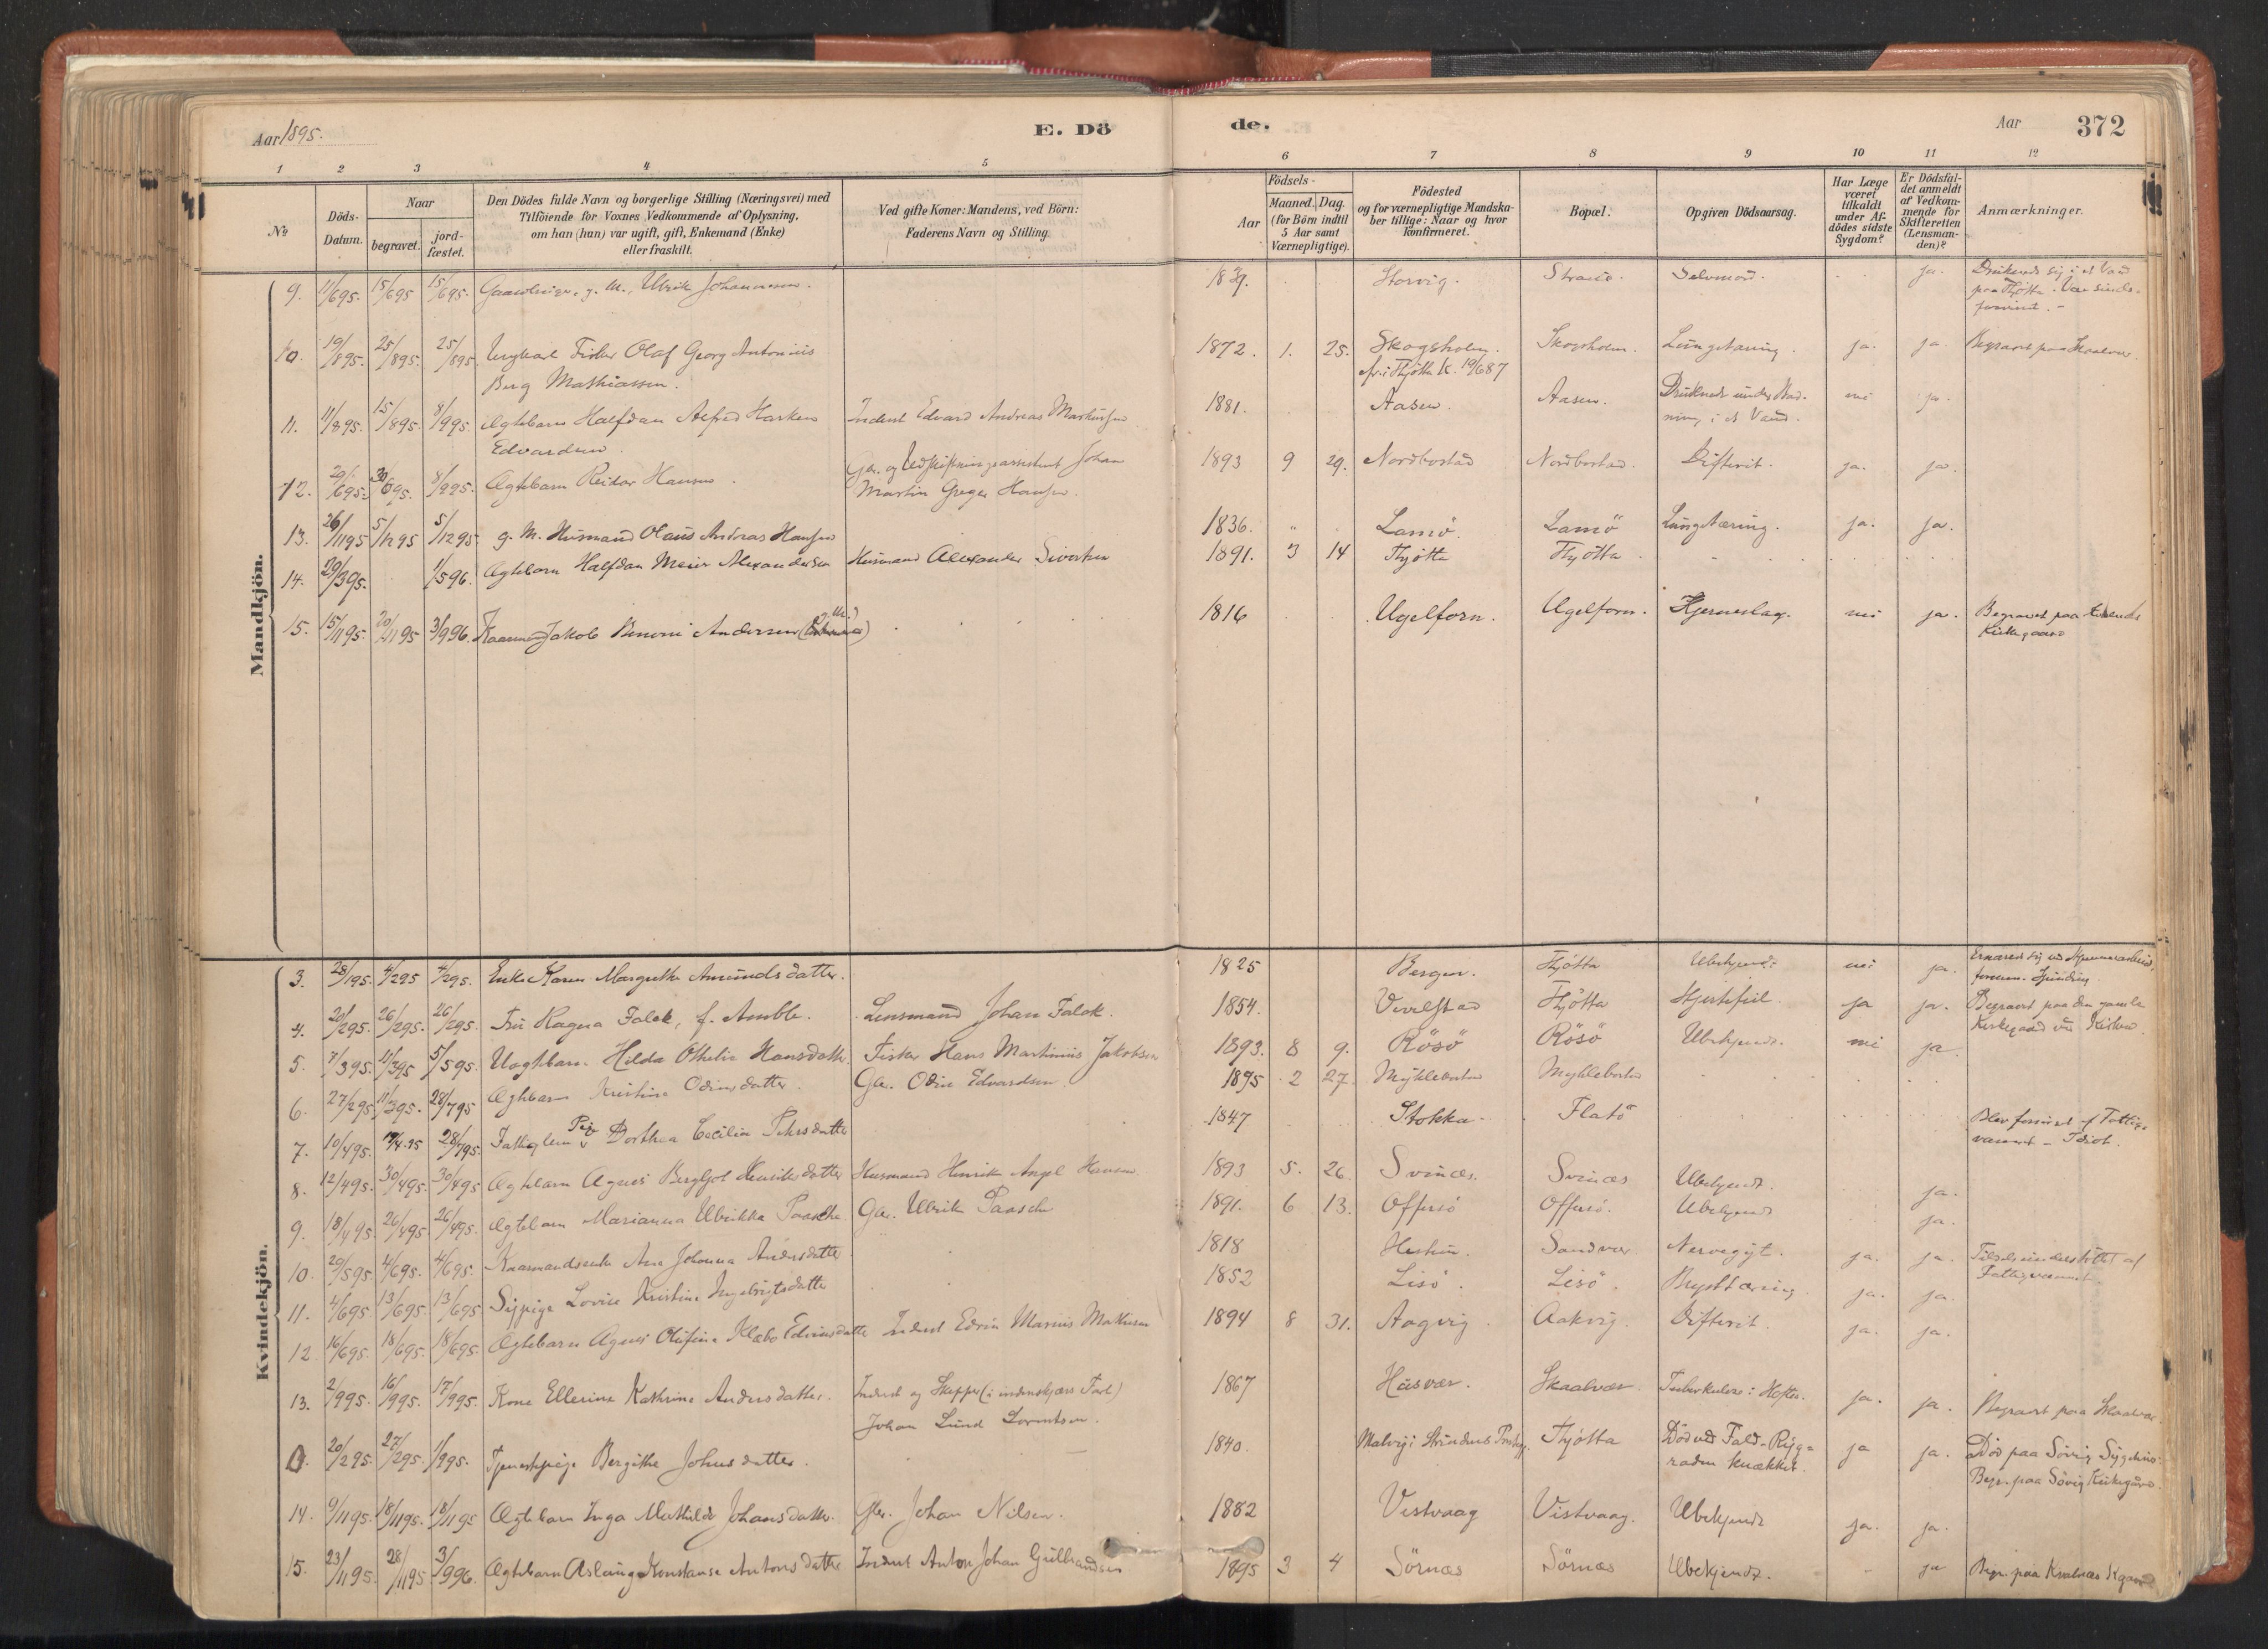 Aar 1895.
E. Dö
de.
Aar
372
1 2 3 4 5
6 7 8 9 10 11 12
No
Döds-
Datum.
Naar
begravet.
jord-
fæstet.
Den Dödes fulde Navn og borgerlige Stilling (Næringsvei) med
Tilföiende for Voxnes Vedkommende af Oplysning,
om han (hun) var ugift, gift, Enkemand (Enke)
eller fraskilt.
Ved gifte Koner: Mandens, ved Börn:
Faderens Navn og Stilling.
Födsels-
Aar
Maaned. Dag.
(for Börn indtil
5 Aar samt
Værnepligtige).
Födested
og for værnepligtige Mandska-
ber tillige: Naar og hvor
Konfirmeret.
Bopæl.
Opgiven Dödsaarsag.
Har Læge
været
tilkaldt
under Af-
dödes sidste
Sygdom?
Er Dödsfal-
det anmeldt
af Vedkom-
mende for
Skifteretten
(Lensman-
den)?
Anmærkninger.
Mandkjön.
9. 11/695. 15/695 15/695. g. M., Ulrik Johannessen. Storvig. Strand. Selvmord. ja. Druknede sig i et Vand
paa Thjötta. Var sinds-
10. 19/895. 25/895. 25/895. Ungkarl Fisker Olaf Georg Antonius 1872. 1. 25. Skogsholm. Skogsholm. Lungetæring. ja. ja. Begravet paa Skaalvær.
Berg Mathiassen. i Thjötta K. 19/687
11. 11/895. 15/895. 8/995. Ægtebarn Halfdan Alfred Edvardsen Inderst Edvard Andreas 1881. Aasen. Aasen. Druknede under Bad-
ning i et Vand. nei ja.
12. 20/695. 30/695. 8/995. Ægtebarn Reidar Hansen. Johan 1893 9 29. Nordbostad Nordbostad. Difterit. ja. ja.
Martin Greger Hansen.
13. 26/1195 5/1295 5/1295. g. M. Husmand Olaus Andreas Hansen 1836. " Lamö. Lamö Lungetæring. ja. ja.
14. 29/395. 1/596. Ægtebarn Halfdan Meier Alexandersen Husmand Alexander Sivertsen 1891. 3 14 Thjötta Thjötta
15. 15/1195 20/1195 3/996. Kaarmand Jakob Benoni Andersen 1816 Ugelforn. Ugelforn. Hjerneslag. nei ja. Begravet paa
Kirkegaard
Kvindekjön.
3. 28/195. 4/295 4/295. Enke Karen Margrethe Amundsdatter. 1825 Bergen. Thjötta Ubekjendt nei ja.
4. 20/295. 26/295. 26/295. Fru Ragna Falck, f. Amble. Lensmand Johan Falck. 1854. Vevelstad Thjötta Hjertefeil. ja ja. Begravet paa den gamle
Kirkegaard ved Kirken.
5. 7/395. 11/395 5/595. Uægtbarn Hilda Othelie Hansdatter Fisker Hans Martinius Jakobsen 1893. 8 9. Rösö Rösö Ubekjendt. nei ja.
6. 27/295 11/395. 28/795 Ægtbarn Kristine Odinsdatter. Gbr. Odin Edvardsen 1895 2 27. Myklebostad Myklebostad
7. 10/495. 19/4.95 28/795. Fattiglem Pige Dorthea Cecilia Pehrsdatter 1847 Stokka. Flatö Blev forsörget af Fattig-
væsenet - Idiot.
8. 12/495. 30/495. 30/495 Ægtebarn Agnes Bergljot Henriksdatter Husmand Henrik Angel Hansen 1893 5. 26. Svinæs. Svinæs Ubekjendt. ja.
9. 18/495. 26/495 26/495. Ægtebarn Marianna Ulrikke Paasche. Gbr. Ulrik Paasche 1891. 6 13. Offersö Offersö. Ubekjendt ja.
10. 29/595 4/695. 4/695. Kaarmandsenke Ane Johanna Andersdatter 1818 Sandvær Nervegigt. ja. ja. Tildels understöttet af
Fattigvæsenet.
11. 4/695. 13/695. 13/695 Sypige Lovise Kristine Ingebrigtsdatter 1852 Lisö. Lisö. Brysttæring. ja. ja.
12. 16/695. 18/695. 18/695. Ægtebarn Agnes Olufine Klæbo Edvinsdatter Inderst Edvin Marius Mathisen 1894 8 31. Aagvig. Aakvig. Difterit. ja. ja.
13. 2/995. 16/995. 17/995. Kone Ellerine Kathrine Andersdatter. Inderst og Skipper (i indenskjærs Fart)
Johan Lund Lorentsen. 1867 Husvær. Skaalvær. Tuberkulose i Hoften. ja. ja. Begravet paa Skaalvær.
0. 20/295. 27/295. 1/995. Tjenestepige Bergithe Johnsdatter. 1840. Malvig i Strindens Thjötta Död ved Fald - Ryg-
raden knækket. ja ja. Död paa Sövig Sygehus.
Begr. paa Sövig Kirkegaard.
14. 9/1195. 18/1195. 18/1195 Ægtebarn Inga Mathilde Johansdatter. Gbr. Johan Nilsen. 1882 Vistvaag Vistvaag. Ubekjendt ja. ja.
15. 23/1195. 28/1195 3/996. Ægtebarn Aslaug Konstanse Antonsdatter Inderst Anton Johan Gulbrandsen 1895 3 4 Sörnæs Sörnæs Ubekjendt. - ja Begr. paa